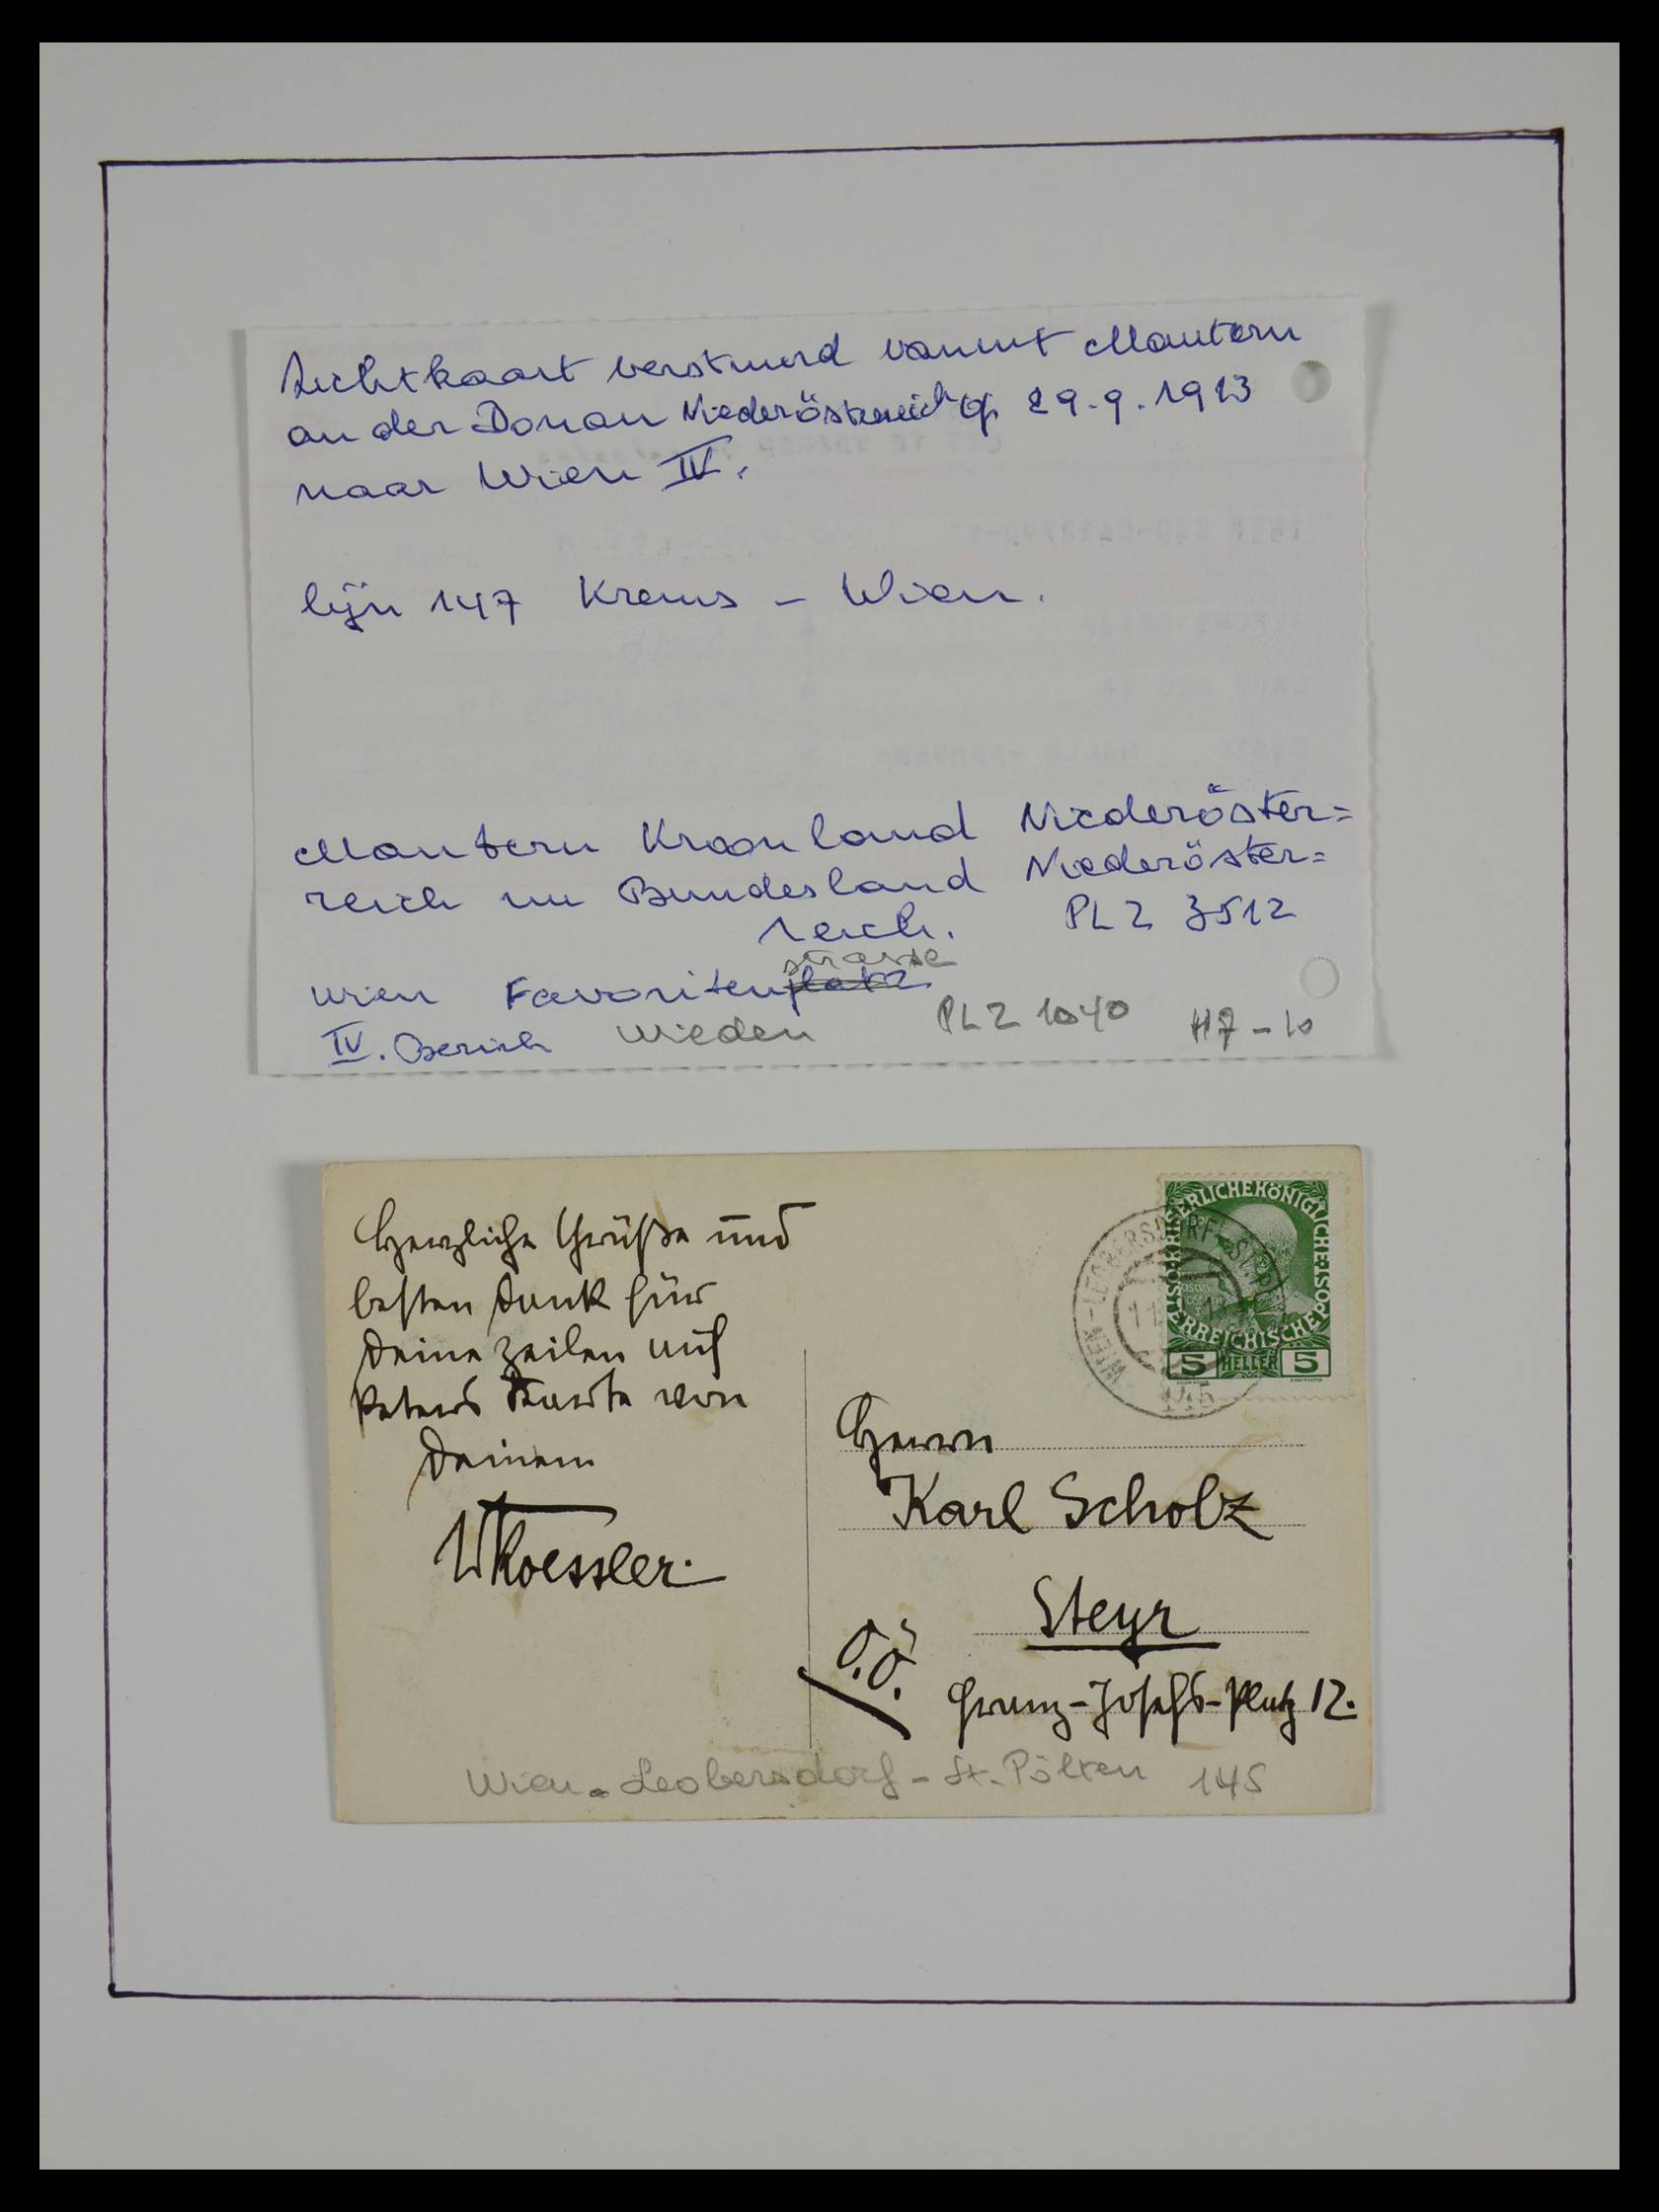 Zichtkaart verstuurd vanuit Mautern
an der Donau Niederösterreich op 29.9.1913
naar Wien IV.
lijn 147 Krems - Wien.
Mautern Kroonland Niederöster=
reich nu Bundesland Niederöster=
reich. PLZ 3512
strasse
Wien Favoritenplatz
IV. Bezirk Wieden PLZ 1040 H7-10
Herzliche Grüße und
besten Dank für
Deine Zeilen auf
Peters Karte von
Deinem
WKoessler.
KAISERLICHE KÖNIGLICHE POST ÖSTERREICHISCHE
5 HELLER 5
WIEN-LEOBERSDORF-ST.
145
Herrn
Karl Scholz
Steyr
O.Ö.
Franz-Josefs-Platz 12.
Wien - Leobersdorf - St. Pölten 145